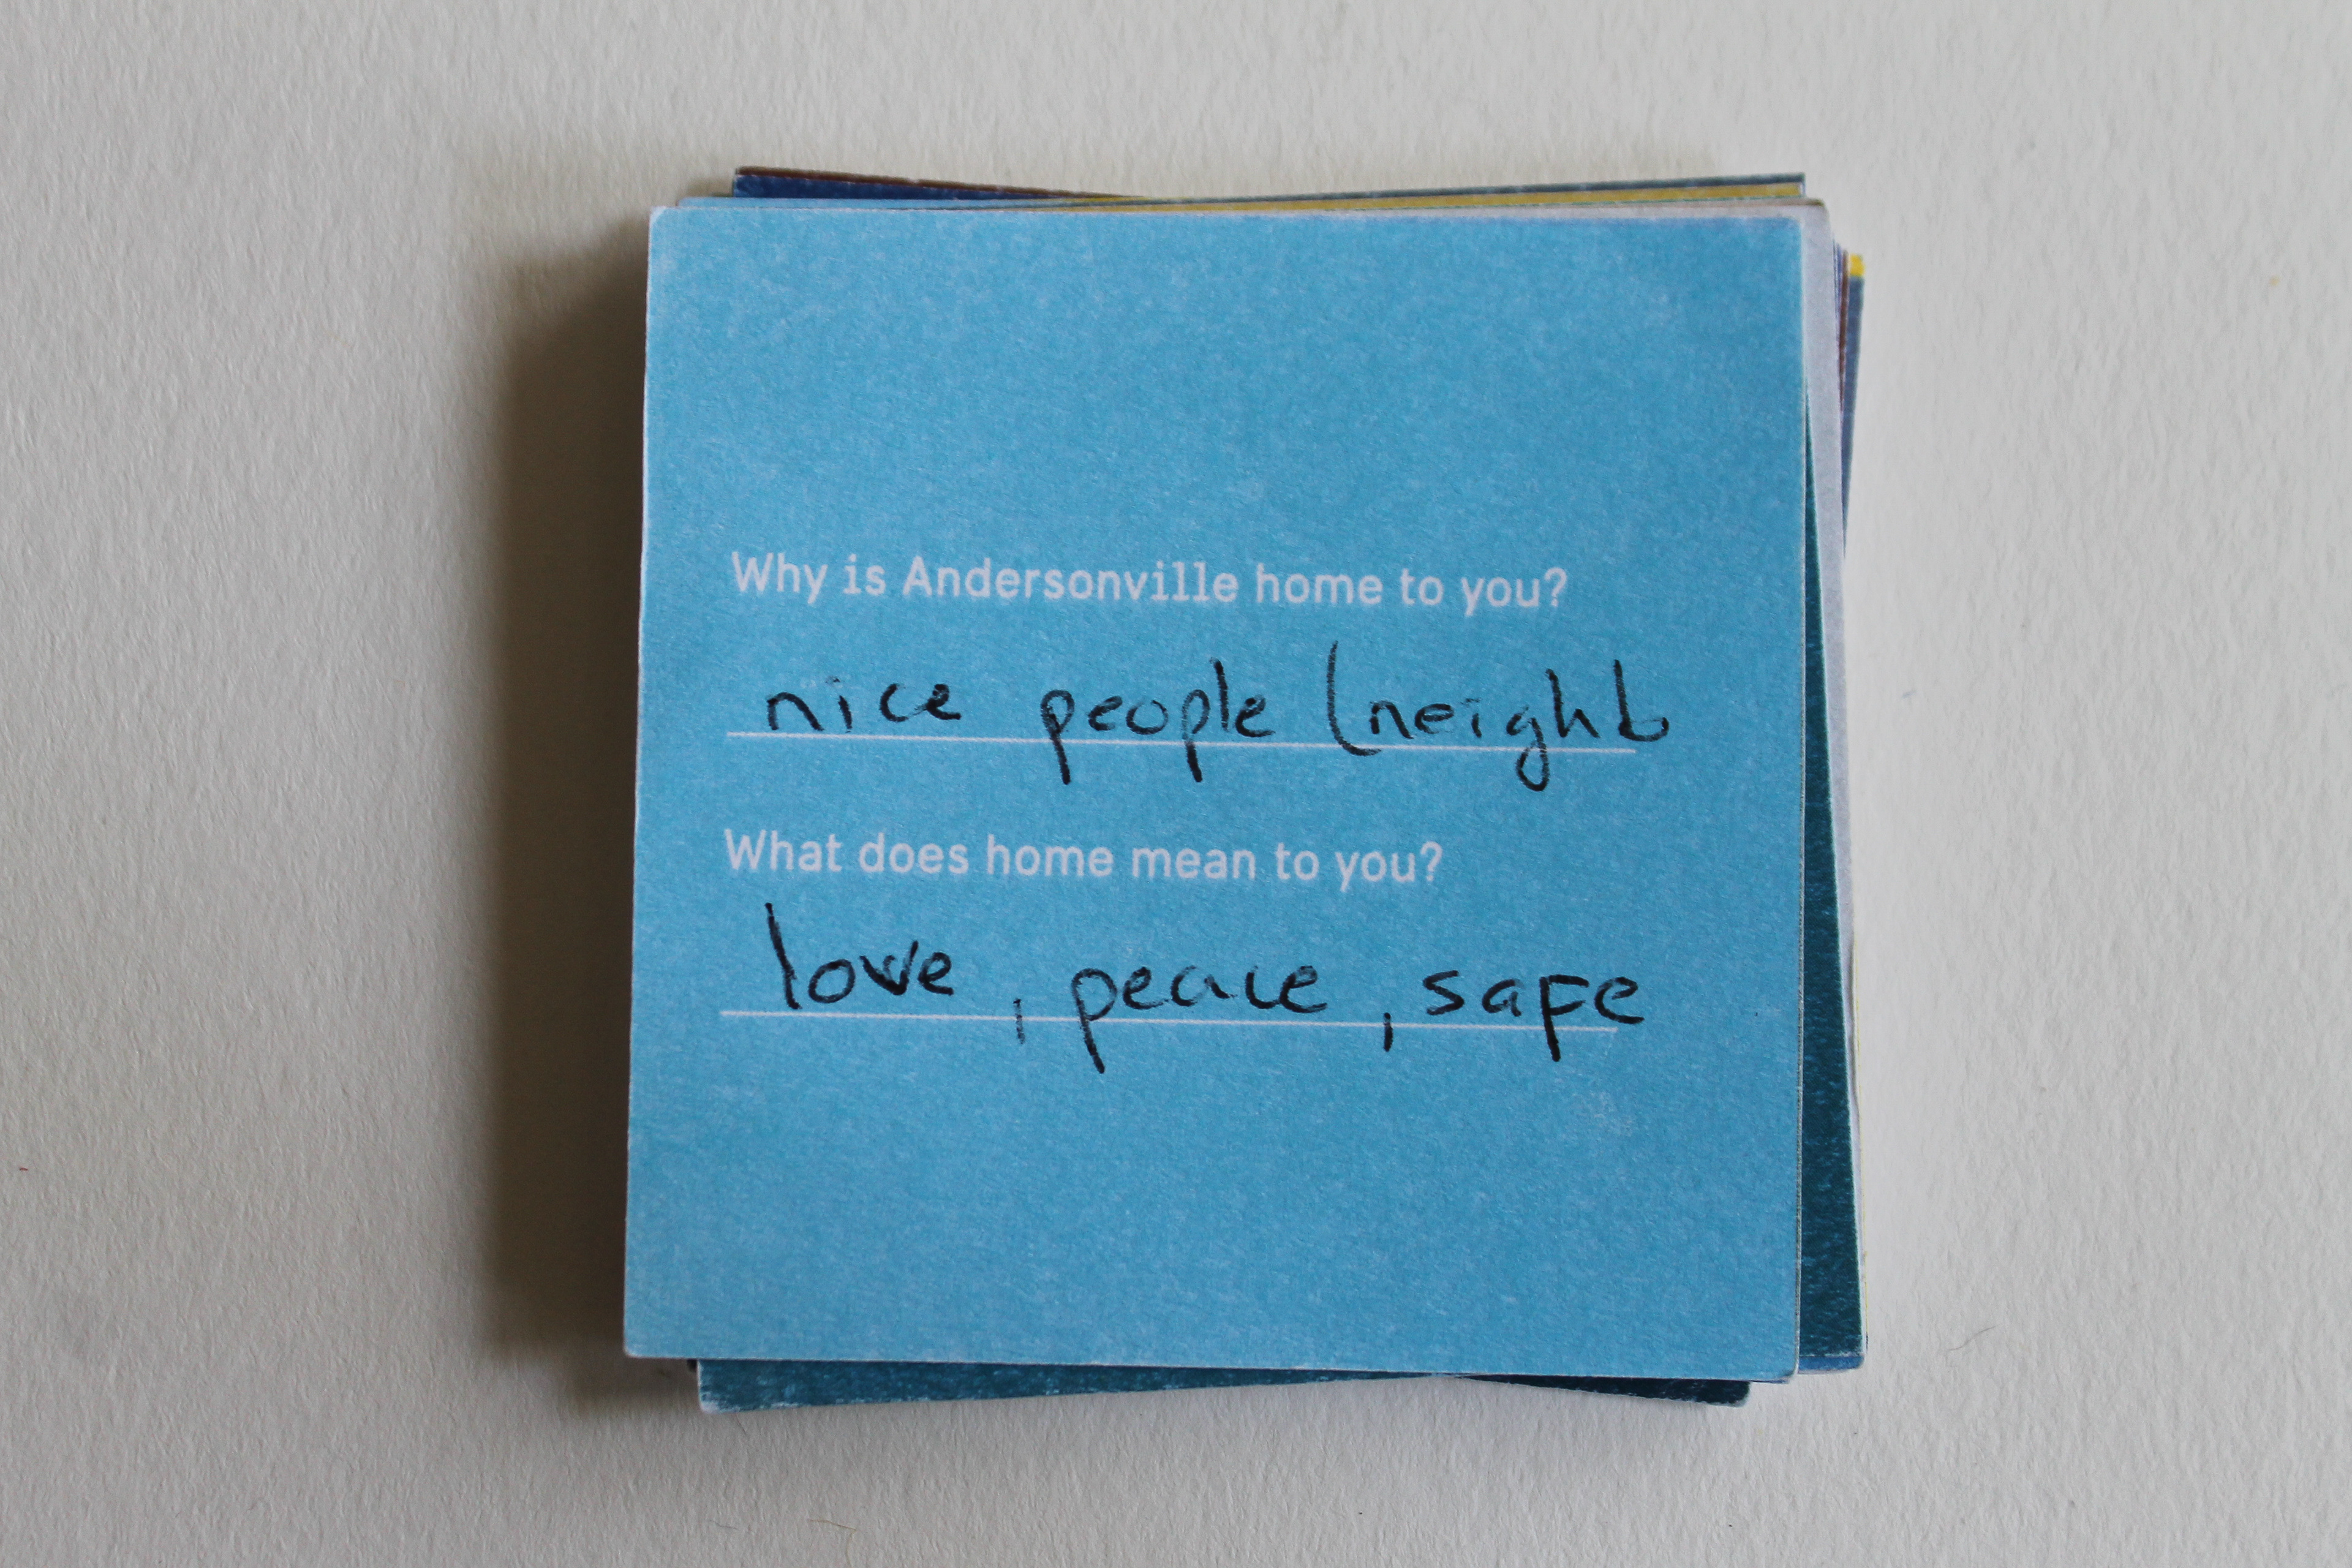 Why is Andersonville home to you?
nice people (neighb
What does home mean to you?
love, peace, safe